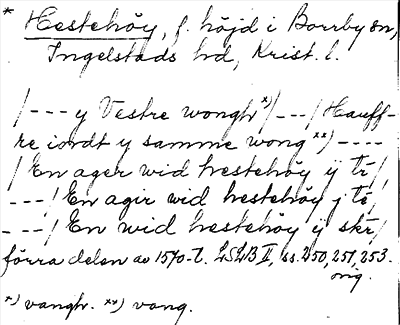 * Hestehöy, f. höjd i Borrby sn,
Ingelstads hd, Krist. l.
/--- y Vestre wonghr *)/---/ Hauff-
re iordt y samme wong **) ----
/ En ager wid hestehöy ÿ tr/,
---/ En agir wid hestehöy y tö,
---/ En wid hestehöy ÿ skr/
förra delen av 1570-t. LSLB II, ss. 250, 251, 253.
orig.
*) vanghr. **) vong.